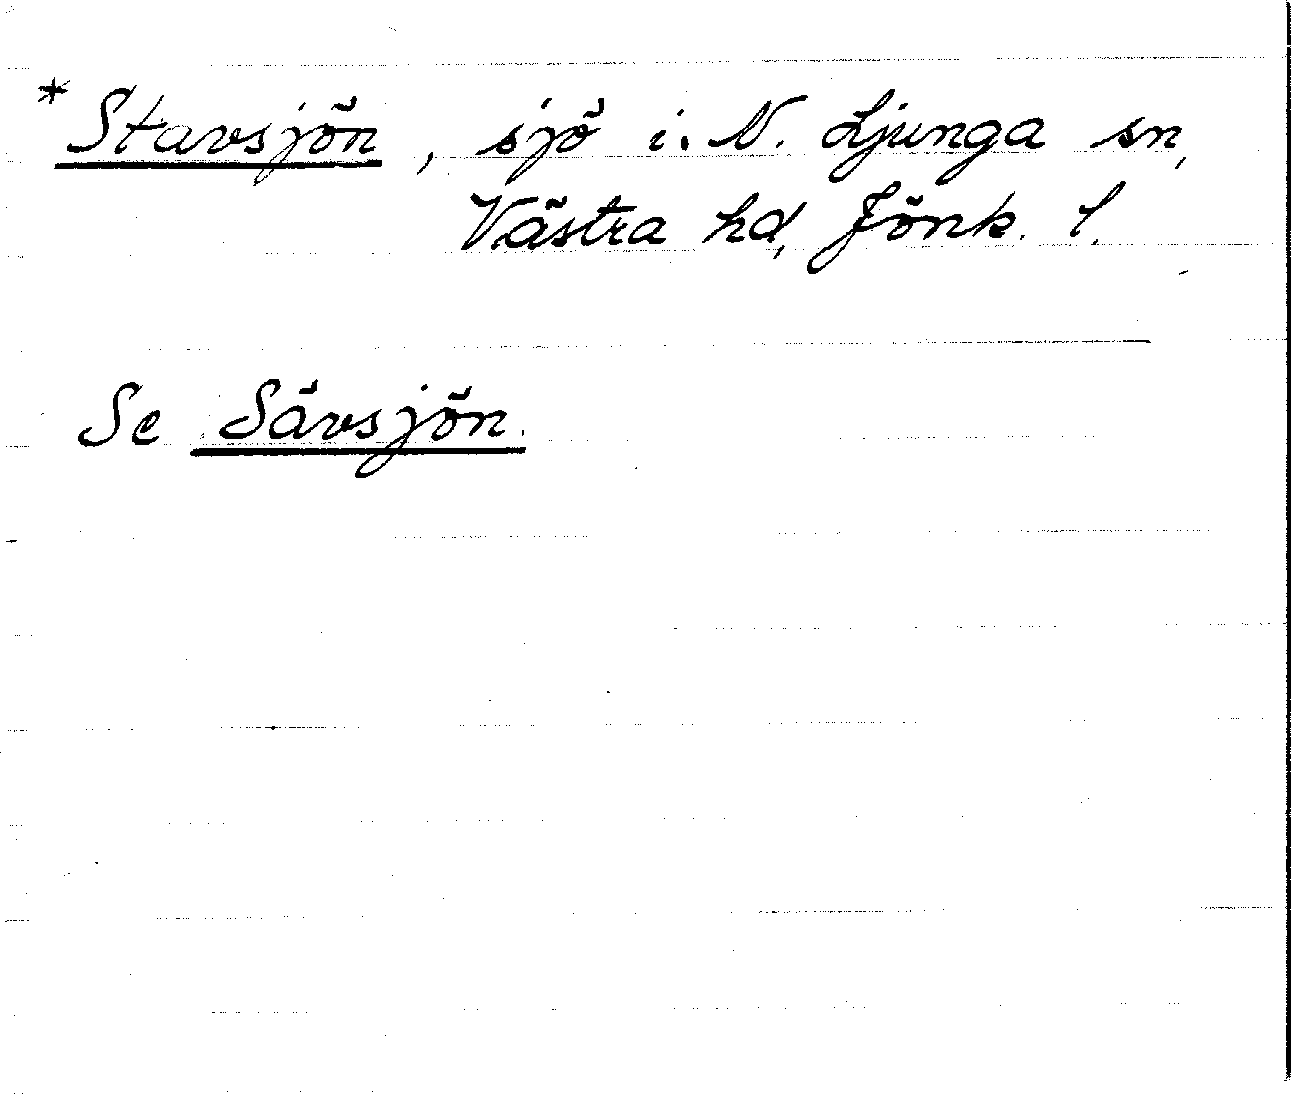 * Stavsjön, sjö i. N. Ljunga sn,
Västra hd, Jönk. l.
Se Sävsjön.